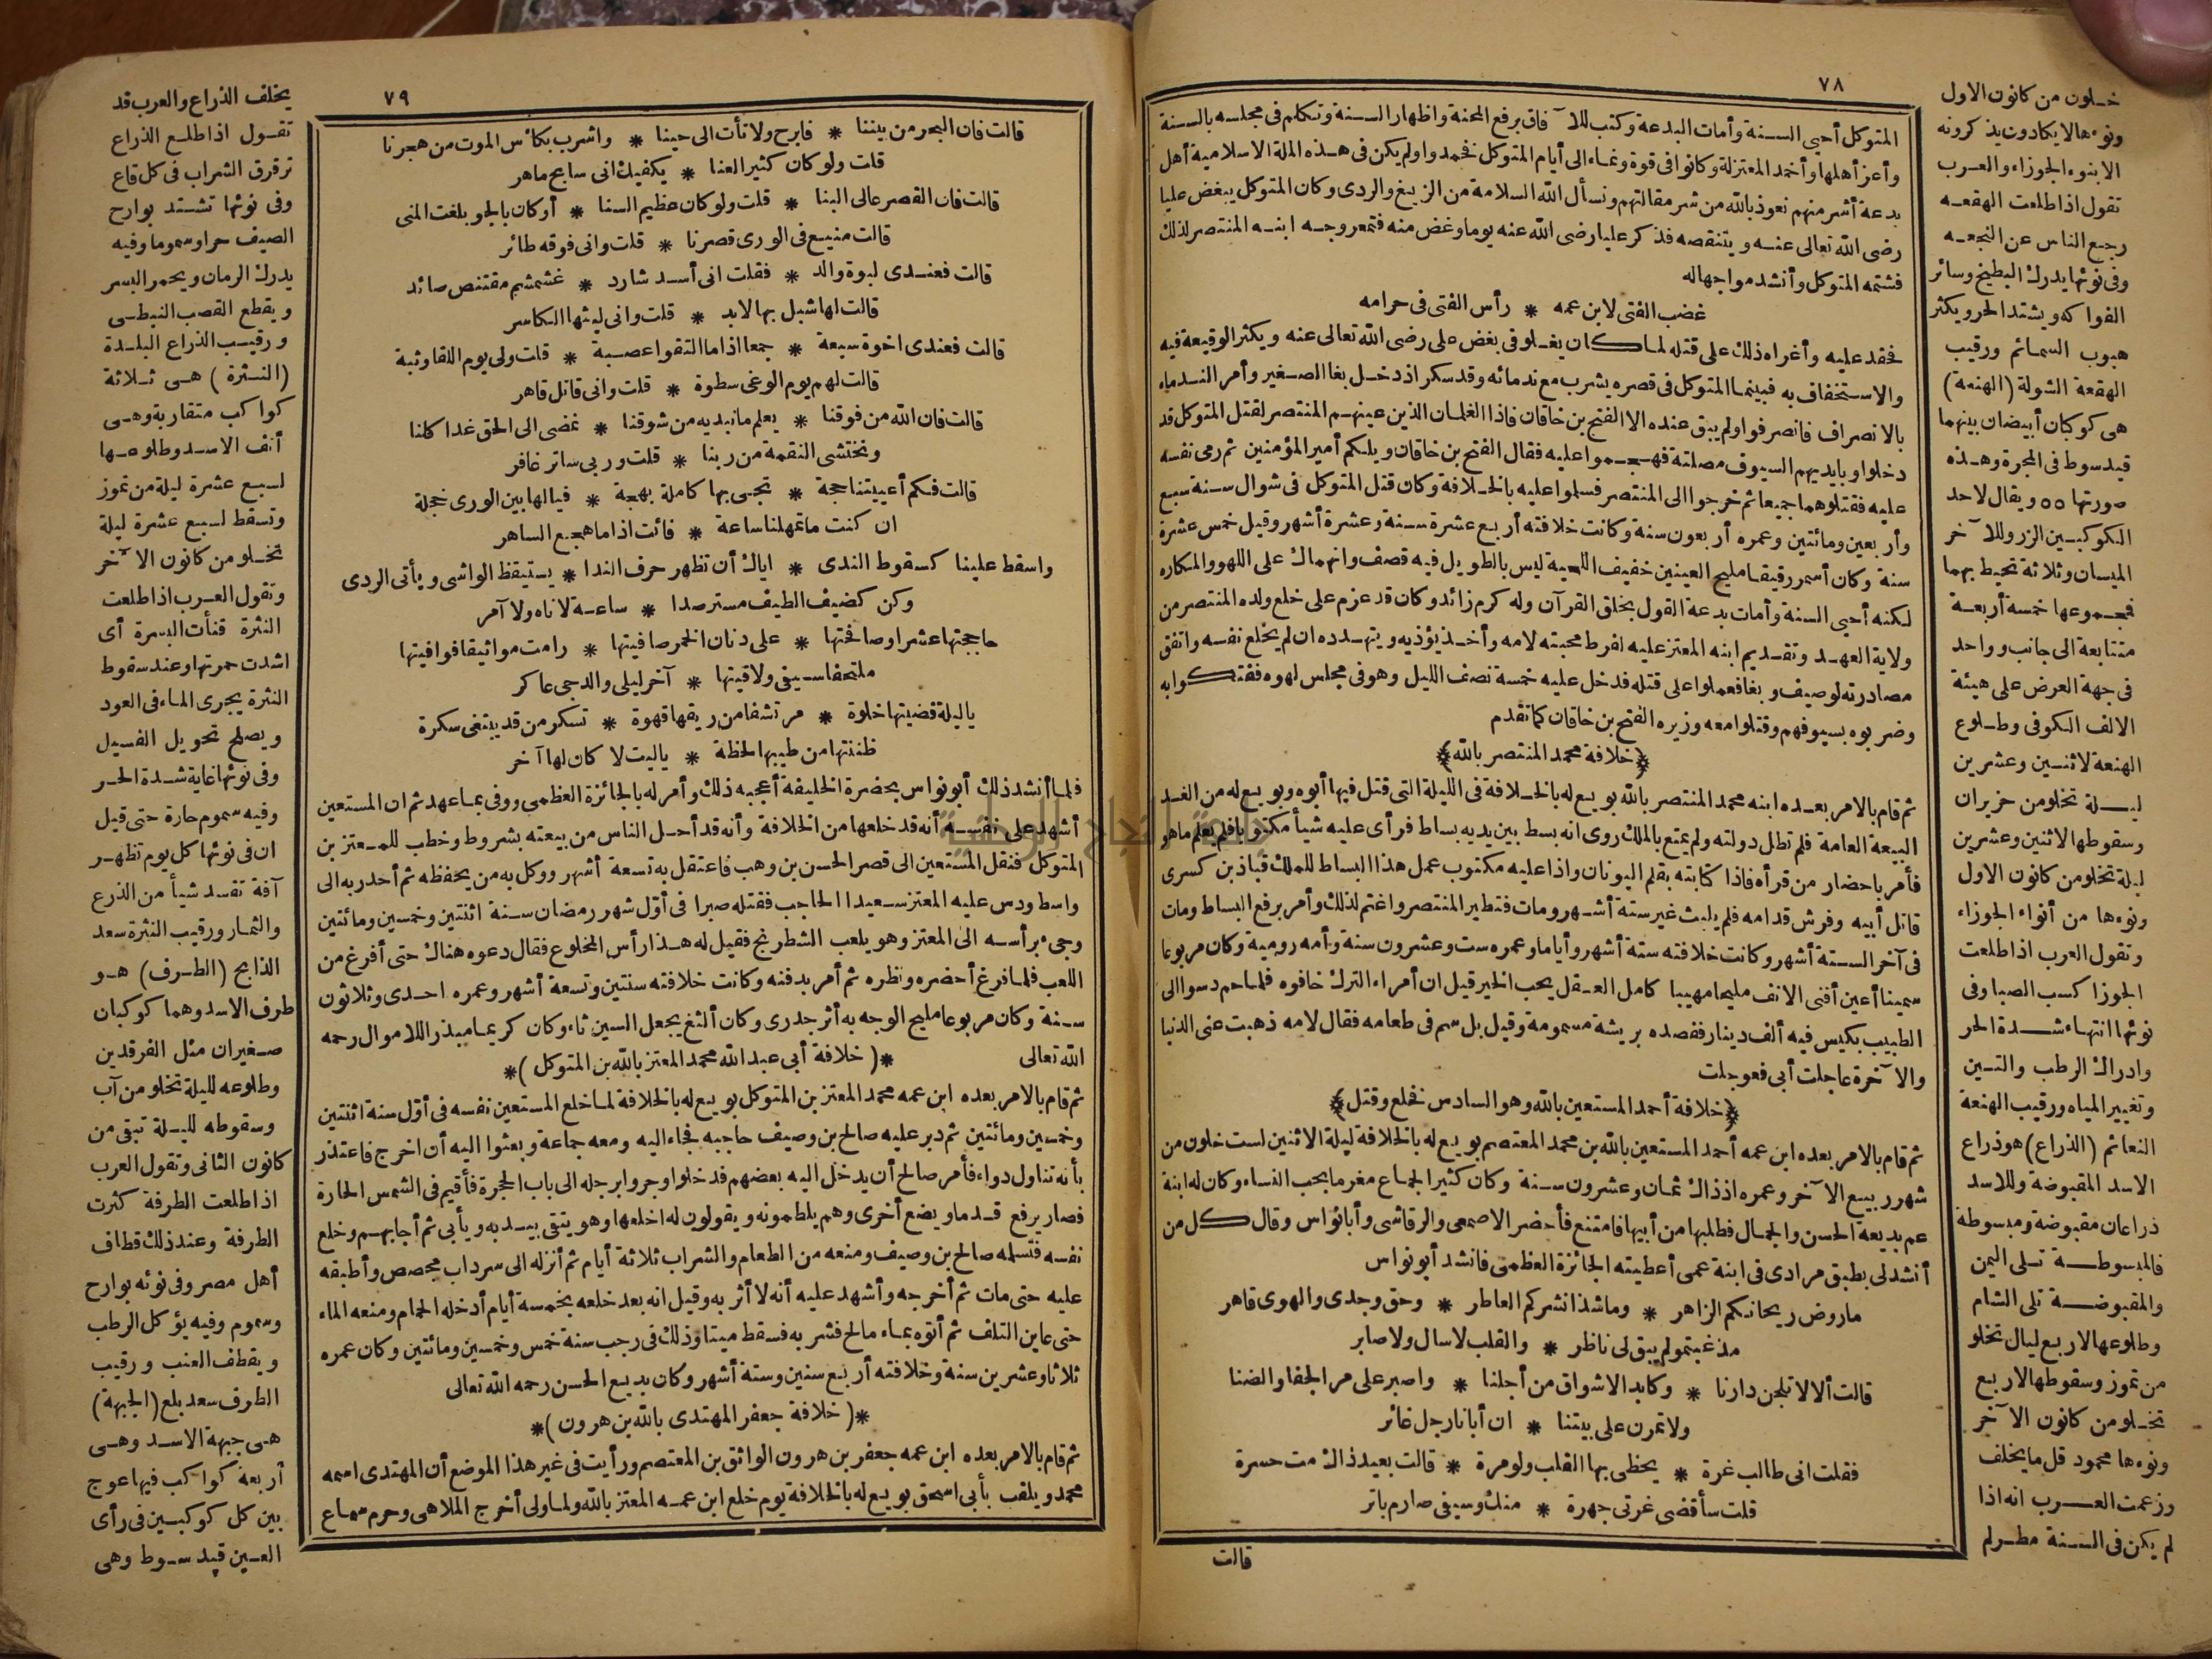 ٧٨
المتوكل أحيى السنة وأمات البدعة وكتب للآفاق برفع المحنة واظهار السنة وتكلم فى مجلسه بالسنة
وأعز أهلها وأخمد المعتزلة وكانوا فى قوة ونماء الى أيام المتوكل فخمدوا ولم يكن فى هذه الملة الاسلامية أهل
بدعة أشر منهم نعوذ بالله من شر مقالتهم ونسأل الله السلامة من الزيغ والردى وكان المتوكل يبغض عليا
رضى الله تعالى عنه ويتنقصه فذكر عليا رضى الله عنه يوما وغض منه فتمعر وجه ابنه المنتصر لذلك
فشتمه المتوكل وأنشد مواجها له
غضب الفتى لابن عمه * رأس الفتى فى حرامه
فحقد عليه وأغراه ذلك على قتله لما كان يغلو فى بغض على رضى الله تعالى عنه ويكثر الوقيعة فيه
والاستخفاف به فبينما المتوكل فى قصره يشرب مع ندمائه وقد سكر اذ دخل بغا الصغير وأمر الندماء
بالانصراف فانصرفوا ولم يبق عنده الا الفتح بن خاقان فاذا الغلمان الذين عينهم المنتصر لقتل المتوكل قد
دخلوا وبايديهم السيوف مصلتة فهجموا عليه فقال الفتح بن خاقان ويلكم أمير المؤمنين ثم رمى نفسه
عليه فقتلوهما جميعا ثم خرجوا الى المنتصر فسلموا عليه بالخلافة وكان قتل المتوكل فى شوال سنة سبع
وأربعين ومائتين وعمره أربعون سنة وكانت خلافته أربع عشرة سنة وعشرة أشهر وقيل خمس عشرة
سنة وكان أسمر رقيقا مليح العينين خفيف اللحية ليس بالطويل فيه قصف وانهماك على اللهو والمكاره
لكنه أحيى السنة وأمات بدعة القول بخلق القرآن وله كرم زائد وكان قد عزم على خلع ولده المنتصر من
ولاية العهد وتقديم ابنه المعتز عليه لفرط محبته لامه وأخذ يؤذيه ويتهدده ان لم يخلع نفسه واتفق
مصادرته لوصيف وبغا فعملوا على قتله فدخل عليه خمسة نصف الليل وهو فى مجلس لهوه ففتكوا به
وضربوه بسيوفهم وقتلوا معه وزيره الفتح بن خاقان كما تقدم
﴿خلافة محمد المنتصر بالله﴾
ثم قام بالامر بعده ابنه محمد المنتصر بالله بويع له بالخلافة فى الليلة التى قتل فيها أبوه وبويع له من الغد
البيعة العامة فلم تطل دولته ولم يمتع بالملك روى انه بسط بين يديه بساط فرأى عليه شيأ مكتوبا فلم يعلم ما هو
فأمر باحضار من قرأه فاذا كتابته بقلم اليونان واذا عليه مكتوب عمل هذا البساط للملك قباذ بن كسرى
قاتل أبيه وفرش قدامه فلم يلبث غير ستة أشهر ومات فتطير المنتصر واغتم لذلك وأمر برفع البساط ومات
فى آخر الستة أشهر وكانت خلافته ستة أشهر وأياما وعمره ست وعشرون سنة وأمه رومية وكان مربوعا
سمينا أعين أقنى الانف مليحا مهيبا كامل العقل يحب الخير قيل ان أمراء الترك خافوه فلما حم دسوا الى
الطبيب بكيس فيه ألف دينار ففصده بريشة مسمومة وقيل بل سم فى طعامه فقال لامه ذهبت عنى الدنيا
والآخرة عاجلت أبى فعوجلت
﴿خلافة أحمد المستعين بالله وهو السادس فخلع وقتل﴾
ثم قام بالامر بعده ابن عمه أحمد المستعين بالله بن محمد المعتصم بويع له بالخلافة ليلة الاثنين لست خلون من
شهر ربيع الآخر وعمره اذ ذاك ثمان وعشرون سنة وكان كثير الجماع مغرما بحب النساء وكان له ابنة
عم بديعة الحسن والجمال فطلبها من أبيها فامتنع فأحضر الاصمعى والرقاشى وأبا نواس وقال كل من
أنشد لى بطبق مرادى فى ابنة عمى أعطيته الجائزة العظمى فانشد أبو نواس
ما روض ريحانكم الزاهر * وما شذا نشركم العاطر * وحق وجدى والهوى قاهر
مذ غبتمو لم يبق لى ناظر * والقلب لا سال ولا صابر
قالت ألا لا تلجن دارنا * وكابد الاشواق من أجلنا * واصبر على مر الجفا والضنا
ولا تمرن على بيتنا * ان أبانا رجل غائر
فقلت انى طالب غرة * يحظى بها القلب ولو مرة * قالت بعيد ذاك مت حسرة
قلت سأقضى غرتى جهرة * منك وسيفى صارم باتر
قالت
خلون من كانون الاول
ونوءها لا يكادون يذكرونه
الا بنوء الجوزاء والعرب
تقول اذا طلعت الهقعه
رجع الناس عن النجعه
وفى نوئها يدرك البطيخ وسائر
الفواكه ويشتد الحر ويكثر
هبوب السمائم ورقيب
الهقعة الشولة (الهنعة)
هى كوكبان أبيضان بينهما
قيد سوط فى المجرة وهذه
صورتها ٥٥ ويقال لاحد
الكوكبين الزر وللآخر
الميسان وثلاثة تحيط بهما
فمجموعها خمسة أربعة
متتابعة الى جانب وواحد
فى جهة العرض على هيئة
الالف الكوفى وطلوع
الهنعة لاثنين وعشرين
ليلة تخلو من حزيران
وسقوطها لاثنين وعشرين
ليلة تخلو من كانون الاول
ونوءها من أنواء الجوزاء
وتقول العرب اذا طلعت
الجوزا كسب الصبا وفى
نوئها انتهاء شدة الحر
وادراك الرطب والتين
وتغيير المياه ورقيب الهنعة
النعائم (الذراع) هو ذراع
الاسد المقبوضة وللاسد
ذراعان مقبوضة ومبسوطة
فالمبسوطة تلى اليمن
والمقبوضة تلى الشام
وطلوعها لاربع ليال تخلو
من تموز وسقوطها لاربع
تخلو من كانون الآخر
ونوءها محمود قل ما يخلف
وزعمت العرب انه اذا
لم يكن فى السنة مطر لم
٧٩
قالت فان البحر من بيننا * فابرح ولا تأت الى حينا * واشرب بكأس الموت من هجرنا
قلت ولو كان كثير العنا * يكفيك انى سابح ماهر
قالت فان القصر عالى البنا * قلت ولو كان عظيم السنا * أو كان بالجو بلغت المنى
قالت منيع فى الورى قصرنا * قلت وانى فوقه طائر
قالت فعندى لبوة والد * فقلت انى أسد شارد * غشمشم مقتنص صائد
قالت لها شبل بها لابد * قلت وانى ليثها الكاسر
قالت فعندى اخوة سبعة * جمعا اذا ما التقوا عصبة * قلت ولى يوم اللقا وثبة
قالت لهم يوم الوغى سطوة * قلت وانى قاتل قاهر
قالت فان الله من فوقنا * يعلم ما نبديه من شوقنا * نمضى الى الحق غدا كلنا
ونختشى النقمة من ربنا * قلت وربى ساتر غافر
قالت فكم أعييتنا حجة * تجى بها كاملة بهجة * فيا لها بين الورى خجلة
ان كنت ما تمهلنا ساعة * فائت اذا ما هجع الساهر
واسقط علينا كسقوط الندى * اياك أن تظهر حرف الندا * يستيقظ الواشى ويأتى الردى
وكن كضيف الطيف مسترصدا * ساعة لا ناه ولا آمر
حاججتها عشرا وصافحتها * على دنان الخمر صافيتها * رامت مواثيقا فوافيتها
ملتحفا سيفى ولاقيتها * آخر ليلى والدجى عاكر
يا ليلة قضيتها خلوة * مرتشفا من ريقها قهوة * تسكر من قد يبتغى سكرة
ظننتها من طيبها لحظة * يا ليت لا كان لها آخر
فلما أنشد ذلك أبو نواس بحضرة الخليفة أعجبه ذلك وأمر له بالجائزة العظمى ووفى بما عهد ثم ان المستعين
أشهد على نفسه أنه قد خلعها من الخلافة وأنه قد أحل الناس من بيعته بشروط وخطب للمعتز بن
المتوكل فنقل المستعين الى قصر الحسن بن وهب فاعتقل به تسعة أشهر ووكل به من يحفظه ثم أحدر به الى
واسط ودس عليه المعتز سعيدا الحاجب فقتله صبرا فى أول شهر رمضان سنة اثنتين وخمسين ومائتين
وجىء برأسه الى المعتز وهو يلعب الشطرنج فقيل له هذا رأس المخلوع فقال دعوه هناك حتى أفرغ من
اللعب فلما فرغ أحضره ونظره ثم أمر بدفنه وكانت خلافته سنتين وتسعة أشهر وعمره احدى وثلاثون
سنة وكان مربوعا مليح الوجه به أثر جدرى وكان ألثغ يجعل السين ثاء وكان كريما مبذرا للاموال رحمه
الله تعالى *( خلافة أبى عبد الله محمد المعتز بالله بن المتوكل )*
ثم قام بالامر بعده ابن عمه محمد المعتز بن المتوكل بويع له بالخلافة لما خلع المستعين نفسه فى أول سنة اثنتين
وخمسين ومائتين ثم دبر عليه صالح بن وصيف حاجبه فجاء اليه ومعه جماعة وبعثوا اليه أن اخرج فاعتذر
بأنه تناول دواء فأمر صالح أن يدخل اليه بعضهم فدخلوا وجروا برجله الى باب الحجرة فأقيم فى الشمس الحارة
فصار يرفع قدما ويضع أخرى وهم يلطمونه ويقولون له اخلعها وهو يتقى بيده ويأبى ثم أجابهم وخلع
نفسه فتسلمه صالح بن وصيف ومنعه من الطعام والشراب ثلاثة أيام ثم أنزله الى سرداب مجصص وأطبقه
عليه حتى مات ثم أخرجه وأشهد عليه أنه لا أثر به وقيل انه بعد خلعه بخمسة أيام أدخله الحمام ومنعه الماء
حتى عاين التلف ثم أتوه بماء مالح فشربه فسقط ميتا وذلك فى رجب سنة خمس وخمسين ومائتين وكان عمره
ثلاثا وعشرين سنة وخلافته أربع سنين وستة أشهر وكان بديع الحسن رحمه الله تعالى
*( خلافة جعفر المهتدى بالله بن هرون )*
ثم قام بالامر بعده ابن عمه جعفر بن هرون الواثق بن المعتصم ورأيت فى غير هذا الموضع أن المهتدى اسمه
محمد ويلقب بأبى اسحق بويع له بالخلافة يوم خلع ابن عمه المعتز بالله ولما ولى أخرج الملاهى وحرم سماع
يخلف الذراع والعرب قد
تقول اذا طلع الذراع
ترقرق الشراب فى كل قاع
وفى نوئها تشتد بوارح
الصيف حرا وسموما وفيه
يدرك الرمان ويحمر البسر
ويقطع القصب النبطى
ورقيب الذراع البلدة
(النثرة) هى ثلاثة
كواكب متقاربة وهى
أنف الاسد وطلوعها
لسبع عشرة ليلة من تموز
وتسقط لسبع عشرة ليلة
تخلو من كانون الآخر
وتقول العرب اذا طلعت
النثرة قنأت البسرة أى
اشتدت حمرتها وعند سقوط
النثرة يجرى الماء فى العود
ويصلح تحويل الفسيل
وفى نوئها غاية شدة الحر
وفيه سموم حارة حتى قيل
ان فى نوئها كل يوم تظهر
آفة تفسد شيأ من الذرع
والثمار ورقيب النثرة سعد
الذابح (الطرف) هو
طرف الاسد وهما كوكبان
صغيران مثل الفرقدين
وطلوعه لليلة تخلو من آب
وسقوطه لليلة تبقى من
كانون الثانى وتقول العرب
اذا طلعت الطرفة كثرت
الطرفة وعند ذلك قطاف
أهل مصر وفى نوئه بوارح
وسموم وفيه يؤكل الرطب
ويقطف العنب ورقيب
الطرف سعد بلع (الجبهة)
هى جبهة الاسد وهى
أربعة كواكب فيها عوج
بين كل كوكبين فى رأى
العين قيد سوط وهى